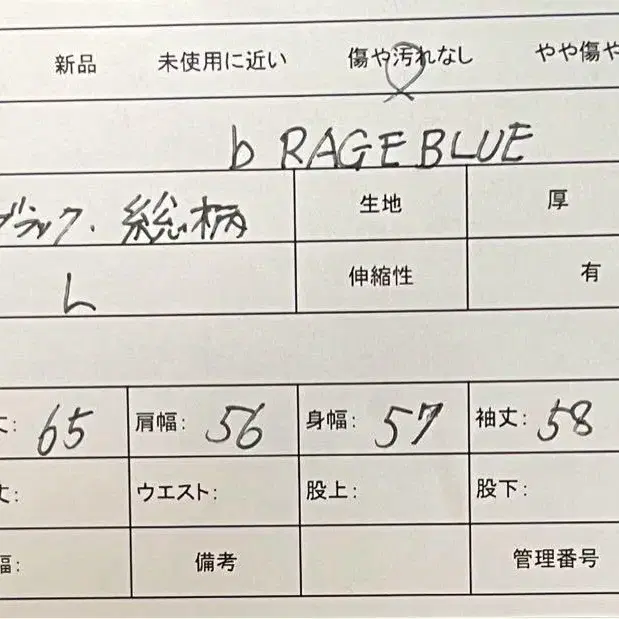 新品 未使用に近い 傷や汚れなし やや傷や
b RAGEBLUE
ブラック. 総柄 生地 厚
L 伸縮性 有
丈: 65 肩幅: 56 身幅: 57 袖丈: 58
丈: ウエスト: 股上: 股下:
幅: 備考 管理番号